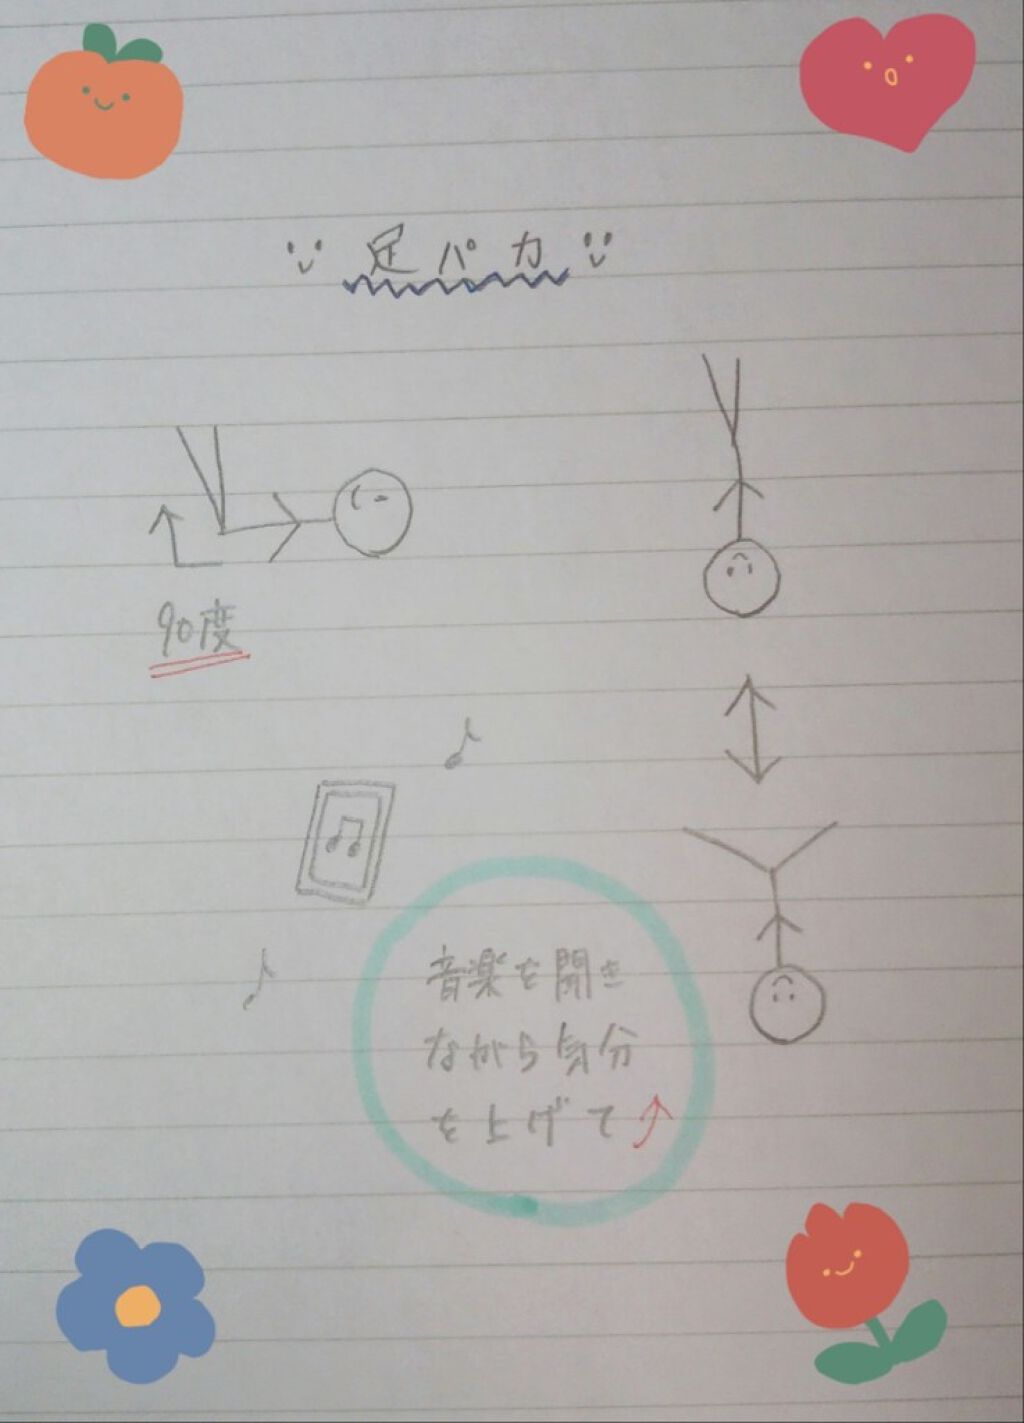 足パカ
90度
音楽を聞き
ながら気分
を上げて